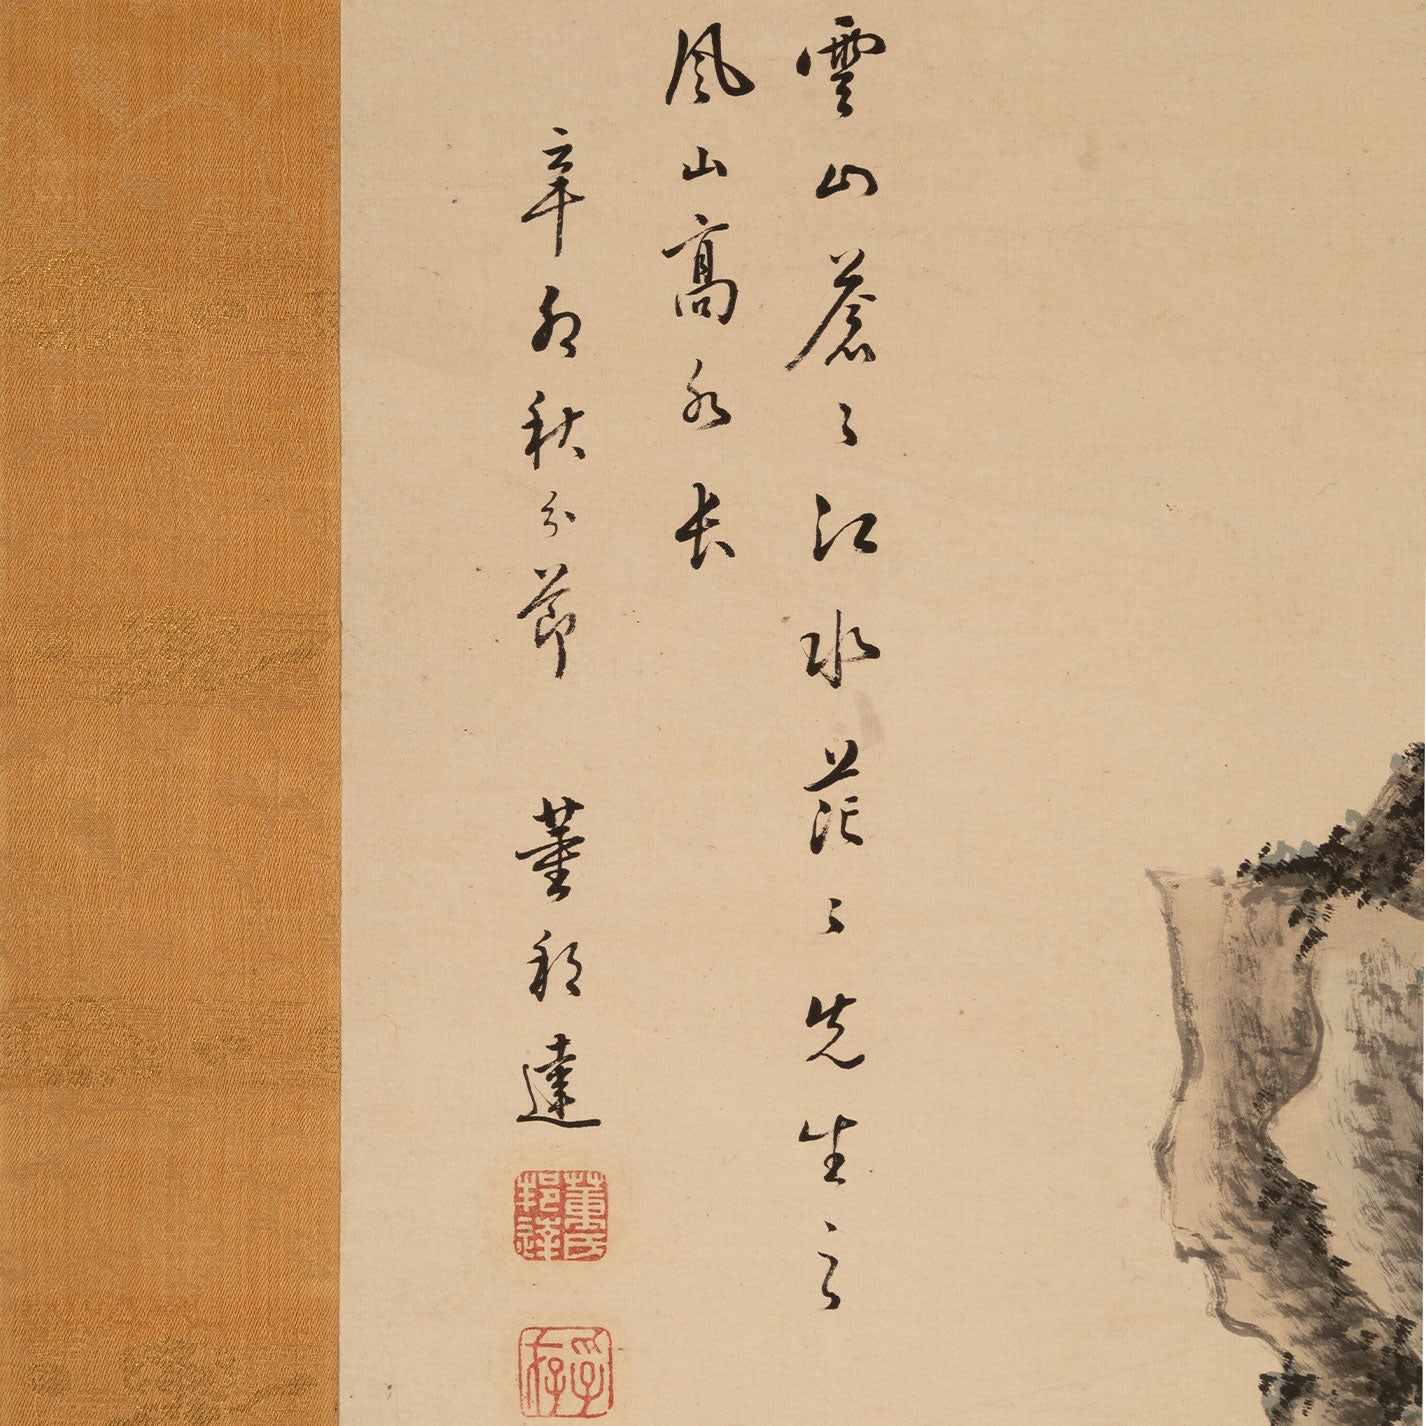 雲山蒼〻江水茫〻先生之
風山高水長
辛卯秋分節 董邦達
董氏邦達
孚存